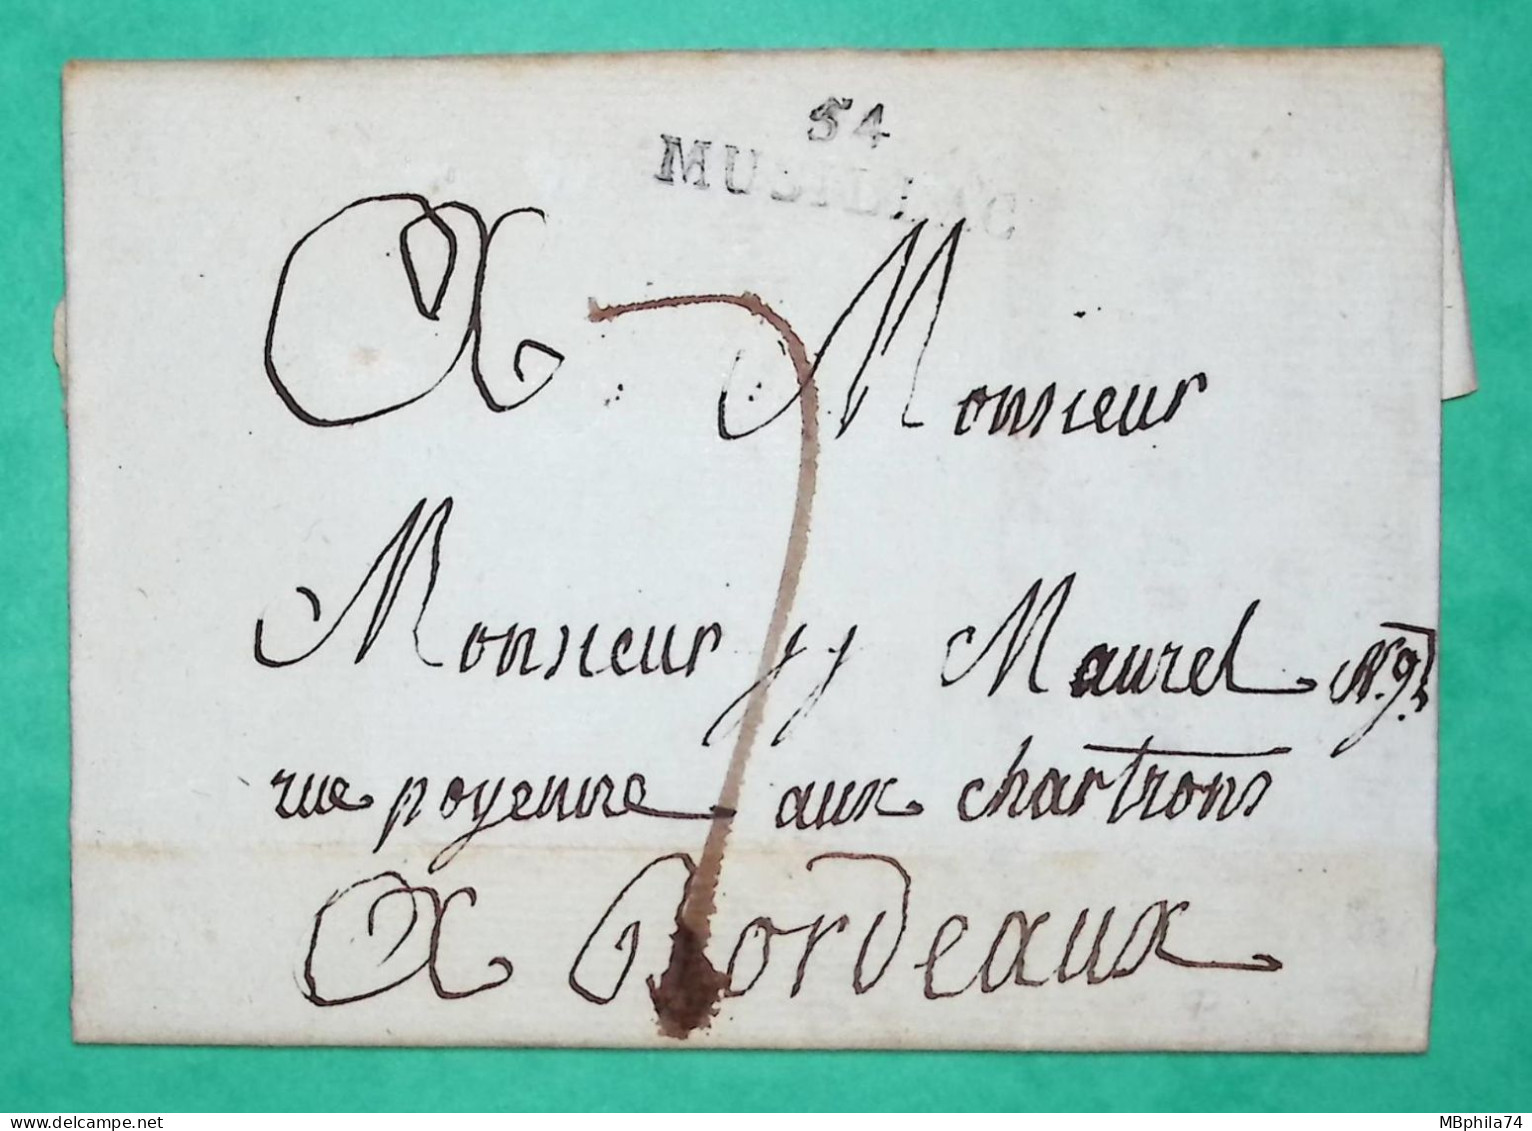 54
MUSILLAC
A Monsieur
Monsieur jj Maurel N.9.
rue poyenne aux chartrons
A Bordeaux
7
MBphila74